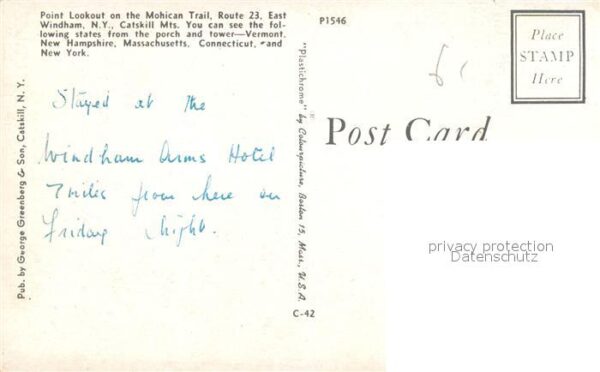 Point Lookout on the Mohican Trail, Route 23, East
Windham, N.Y., Catskill Mts. You can see the fol-
lowing states from the porch and tower—Vermont,
New Hampshire, Massachusetts, Connecticut, and
New York.
P1546
Place
STAMP
Here
Post Card
Stayed at the
Windham Arms Hotel
7 miles from here on
Friday Night.
Pub. by George Greenberg & Son, Catskill, N. Y.
"Plastichrome" by Colourpicture, Boston 15, Mass., U.S.A.
C-42
privacy protection
Datenschutz